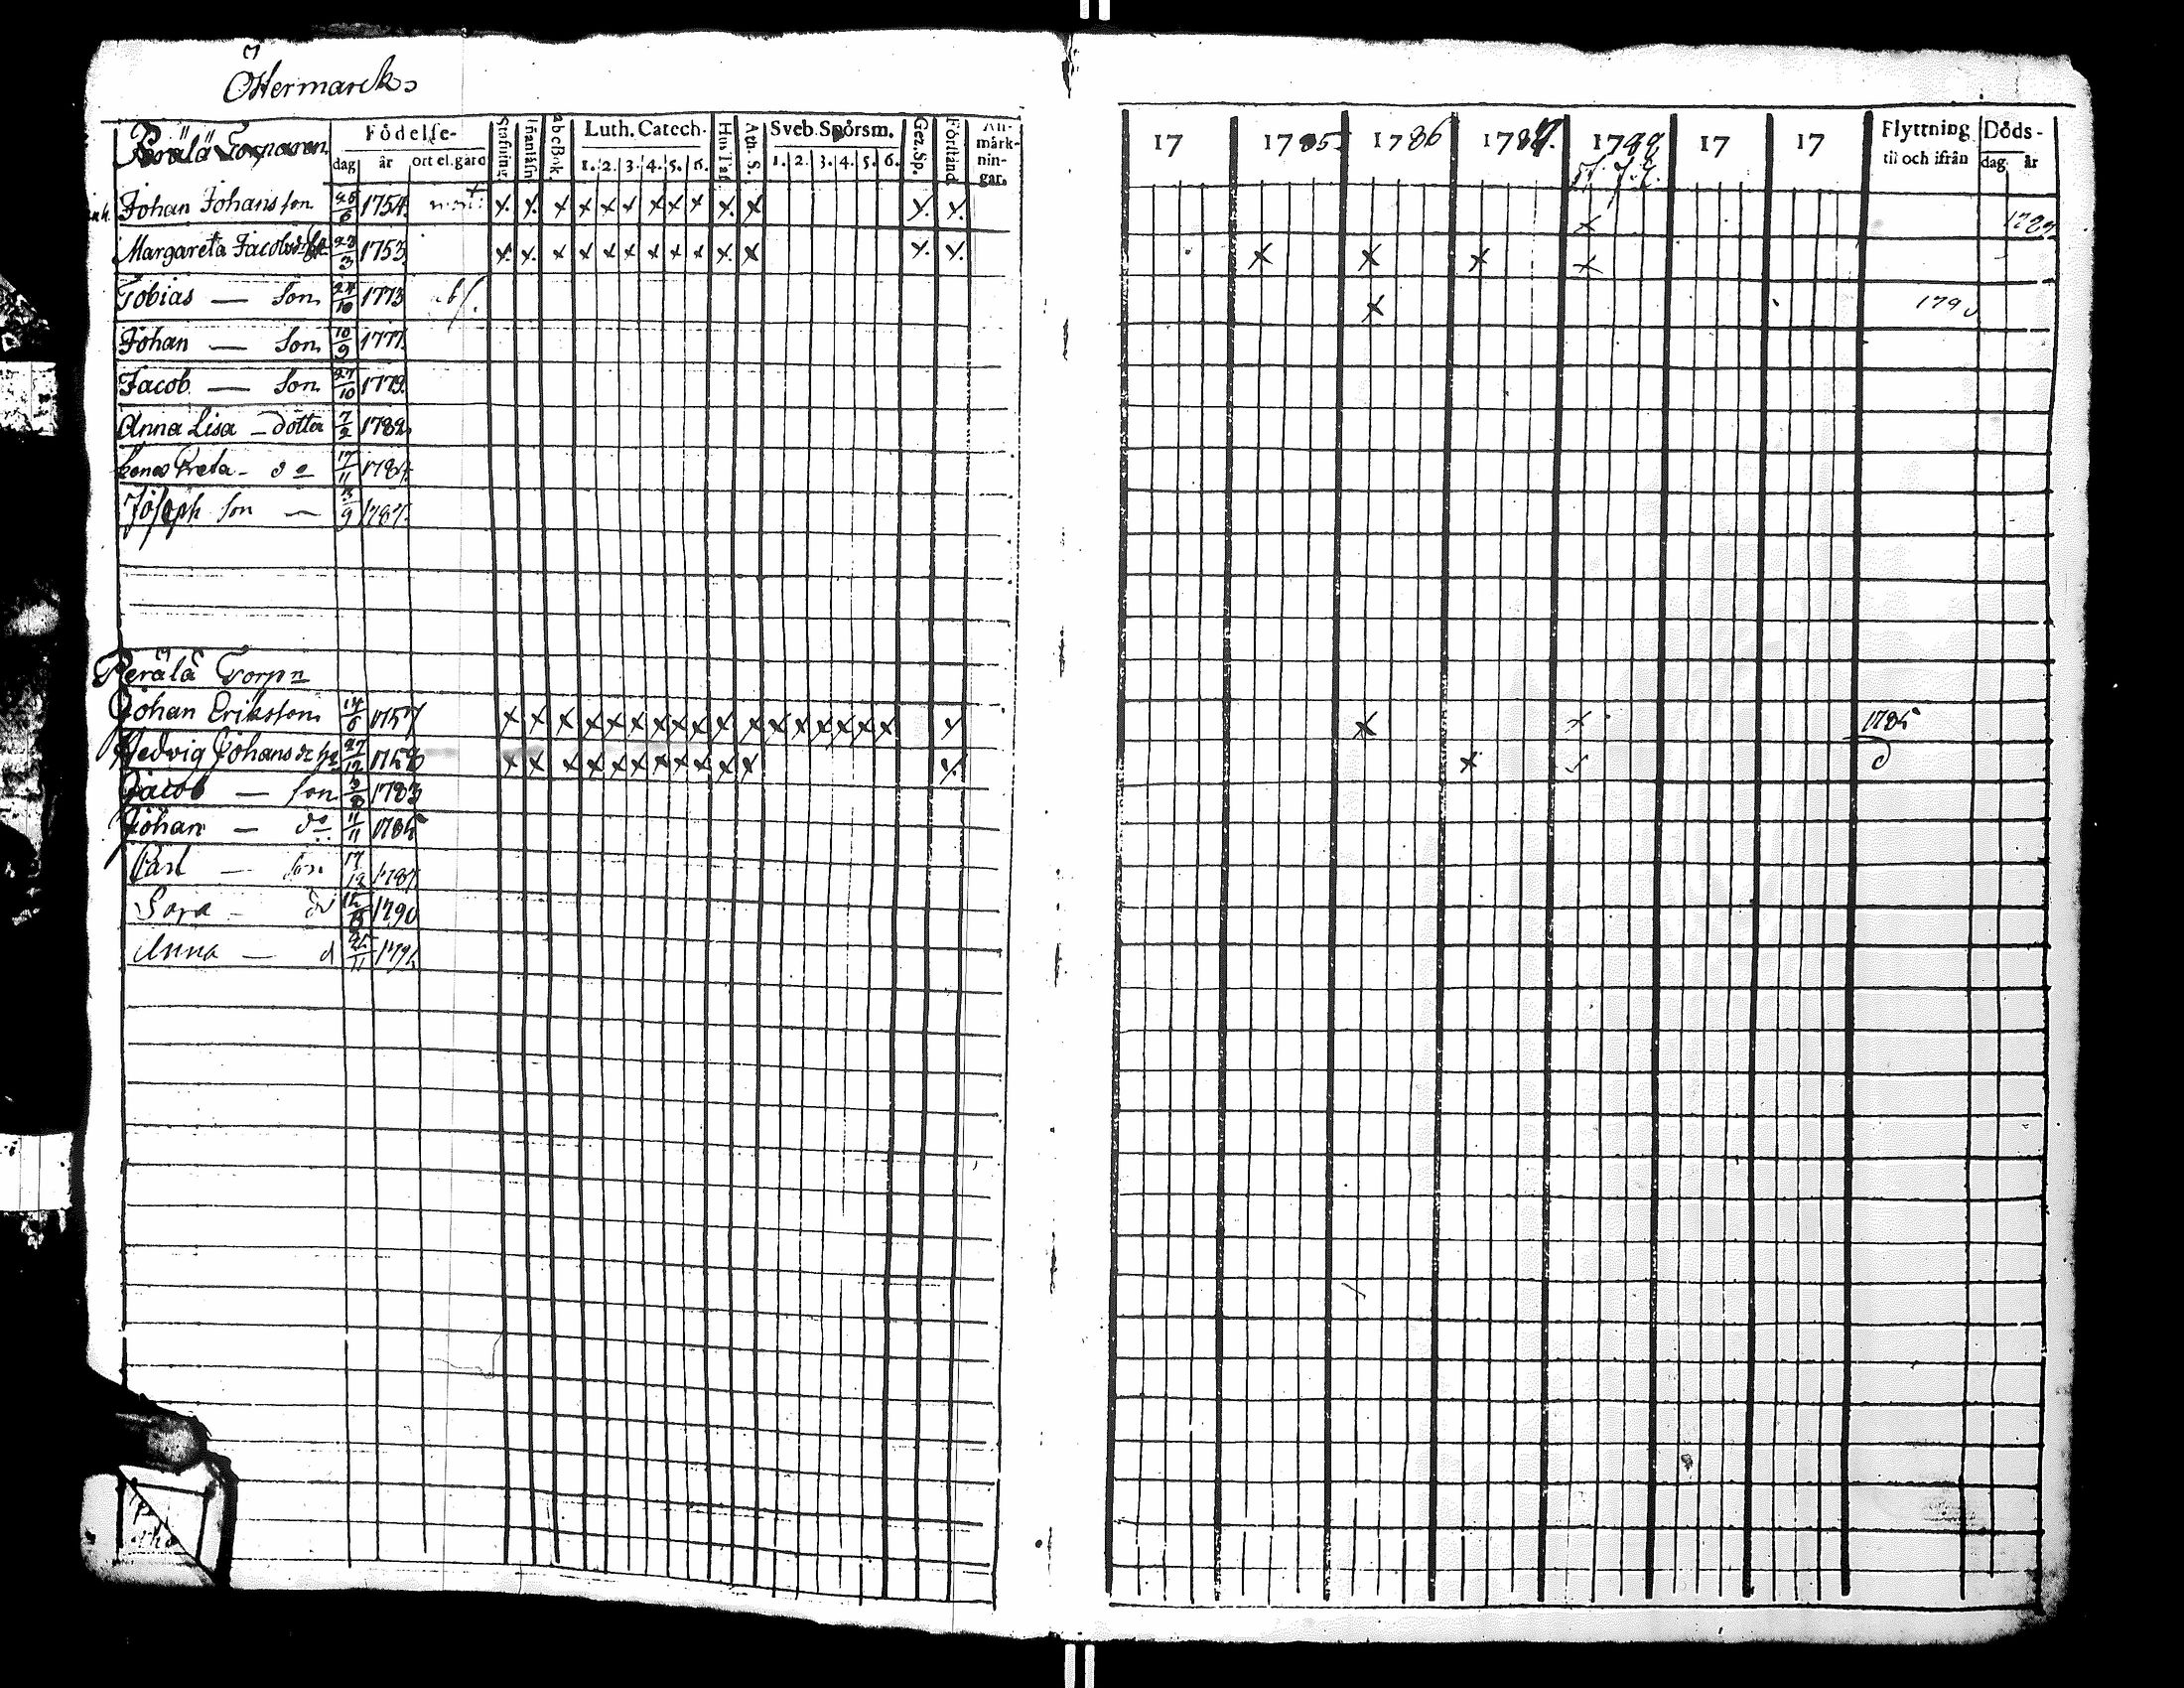 Östermarck
Perälä Torparen Födelse- Stafning Inanläsn. abcBok. Luth. Catech. Hus Taf. Ath. S. Sveb. Spörsm. Gez. Sp. Förstånd An-
märk-
nin-
gar.
dag år ort el. gård 1. 2. 3. 4. 5. 6. 1. 2. 3. 4. 5. 6.
Johan Johansson 26/6 1754. + x. x. x x x x x x x x. x x. x.
Margareta Jacobsdr 23/3 1753 x. x. x x x x x x x x. x x. x.
Tobias — Son 24/10 1773
Johan — Son 10/9 1777.
Jacob — Son 27/10 1779.
Anna Lisa — dotter 7/2 1782
Greta — do 17/11 1784.
Joseph son — /9 1787.
Perälä Torpn
Johan Eriksson 14/6 1757 x x x x x x x x x x x x x x x x x x
Hedvig Johansdr 27/12 1758 x x x x x x x x x x x x.
Jacob — son 3/8 1783
Johan — do 11/11 1785
Carl — son 17/12 1787.
Sara — 1790
Anna — d /11
17 1785. 1786 1787. 1789 17 17 Flyttning Döds-
til och ifrån dag år
x
x x x x
x 1790
x x 1785
x